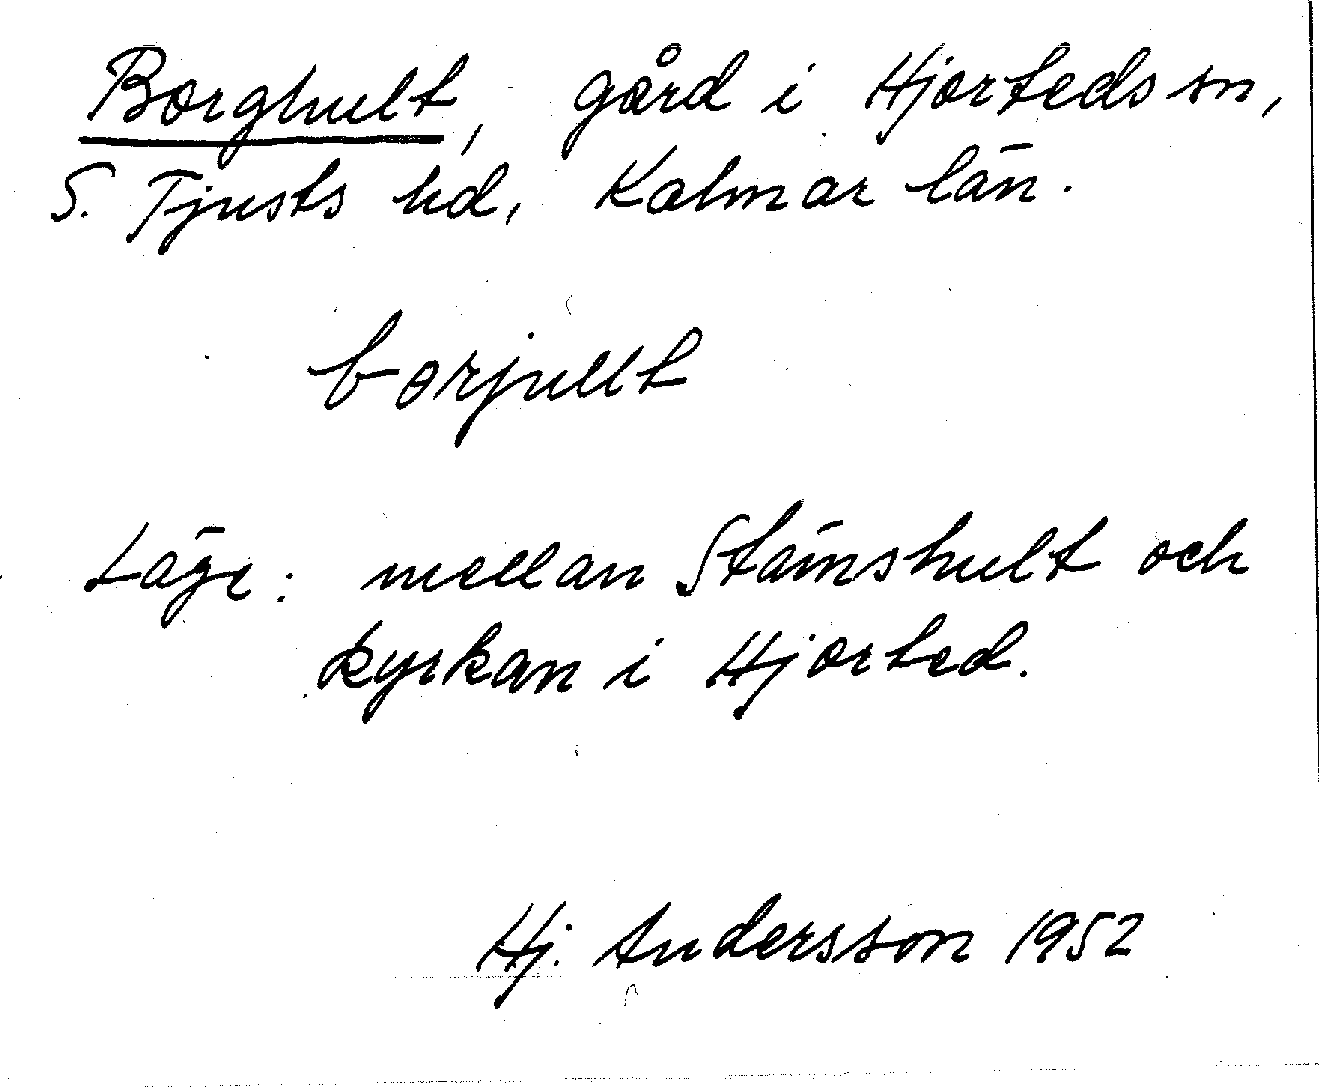 Borghult, gård i Hjorteds sn,
S. Tjusts hd, Kalmar län.
borjullt
Läge: mellan Stämshult och
kyrkan i Hjorted.
Hj. Andersson 1952